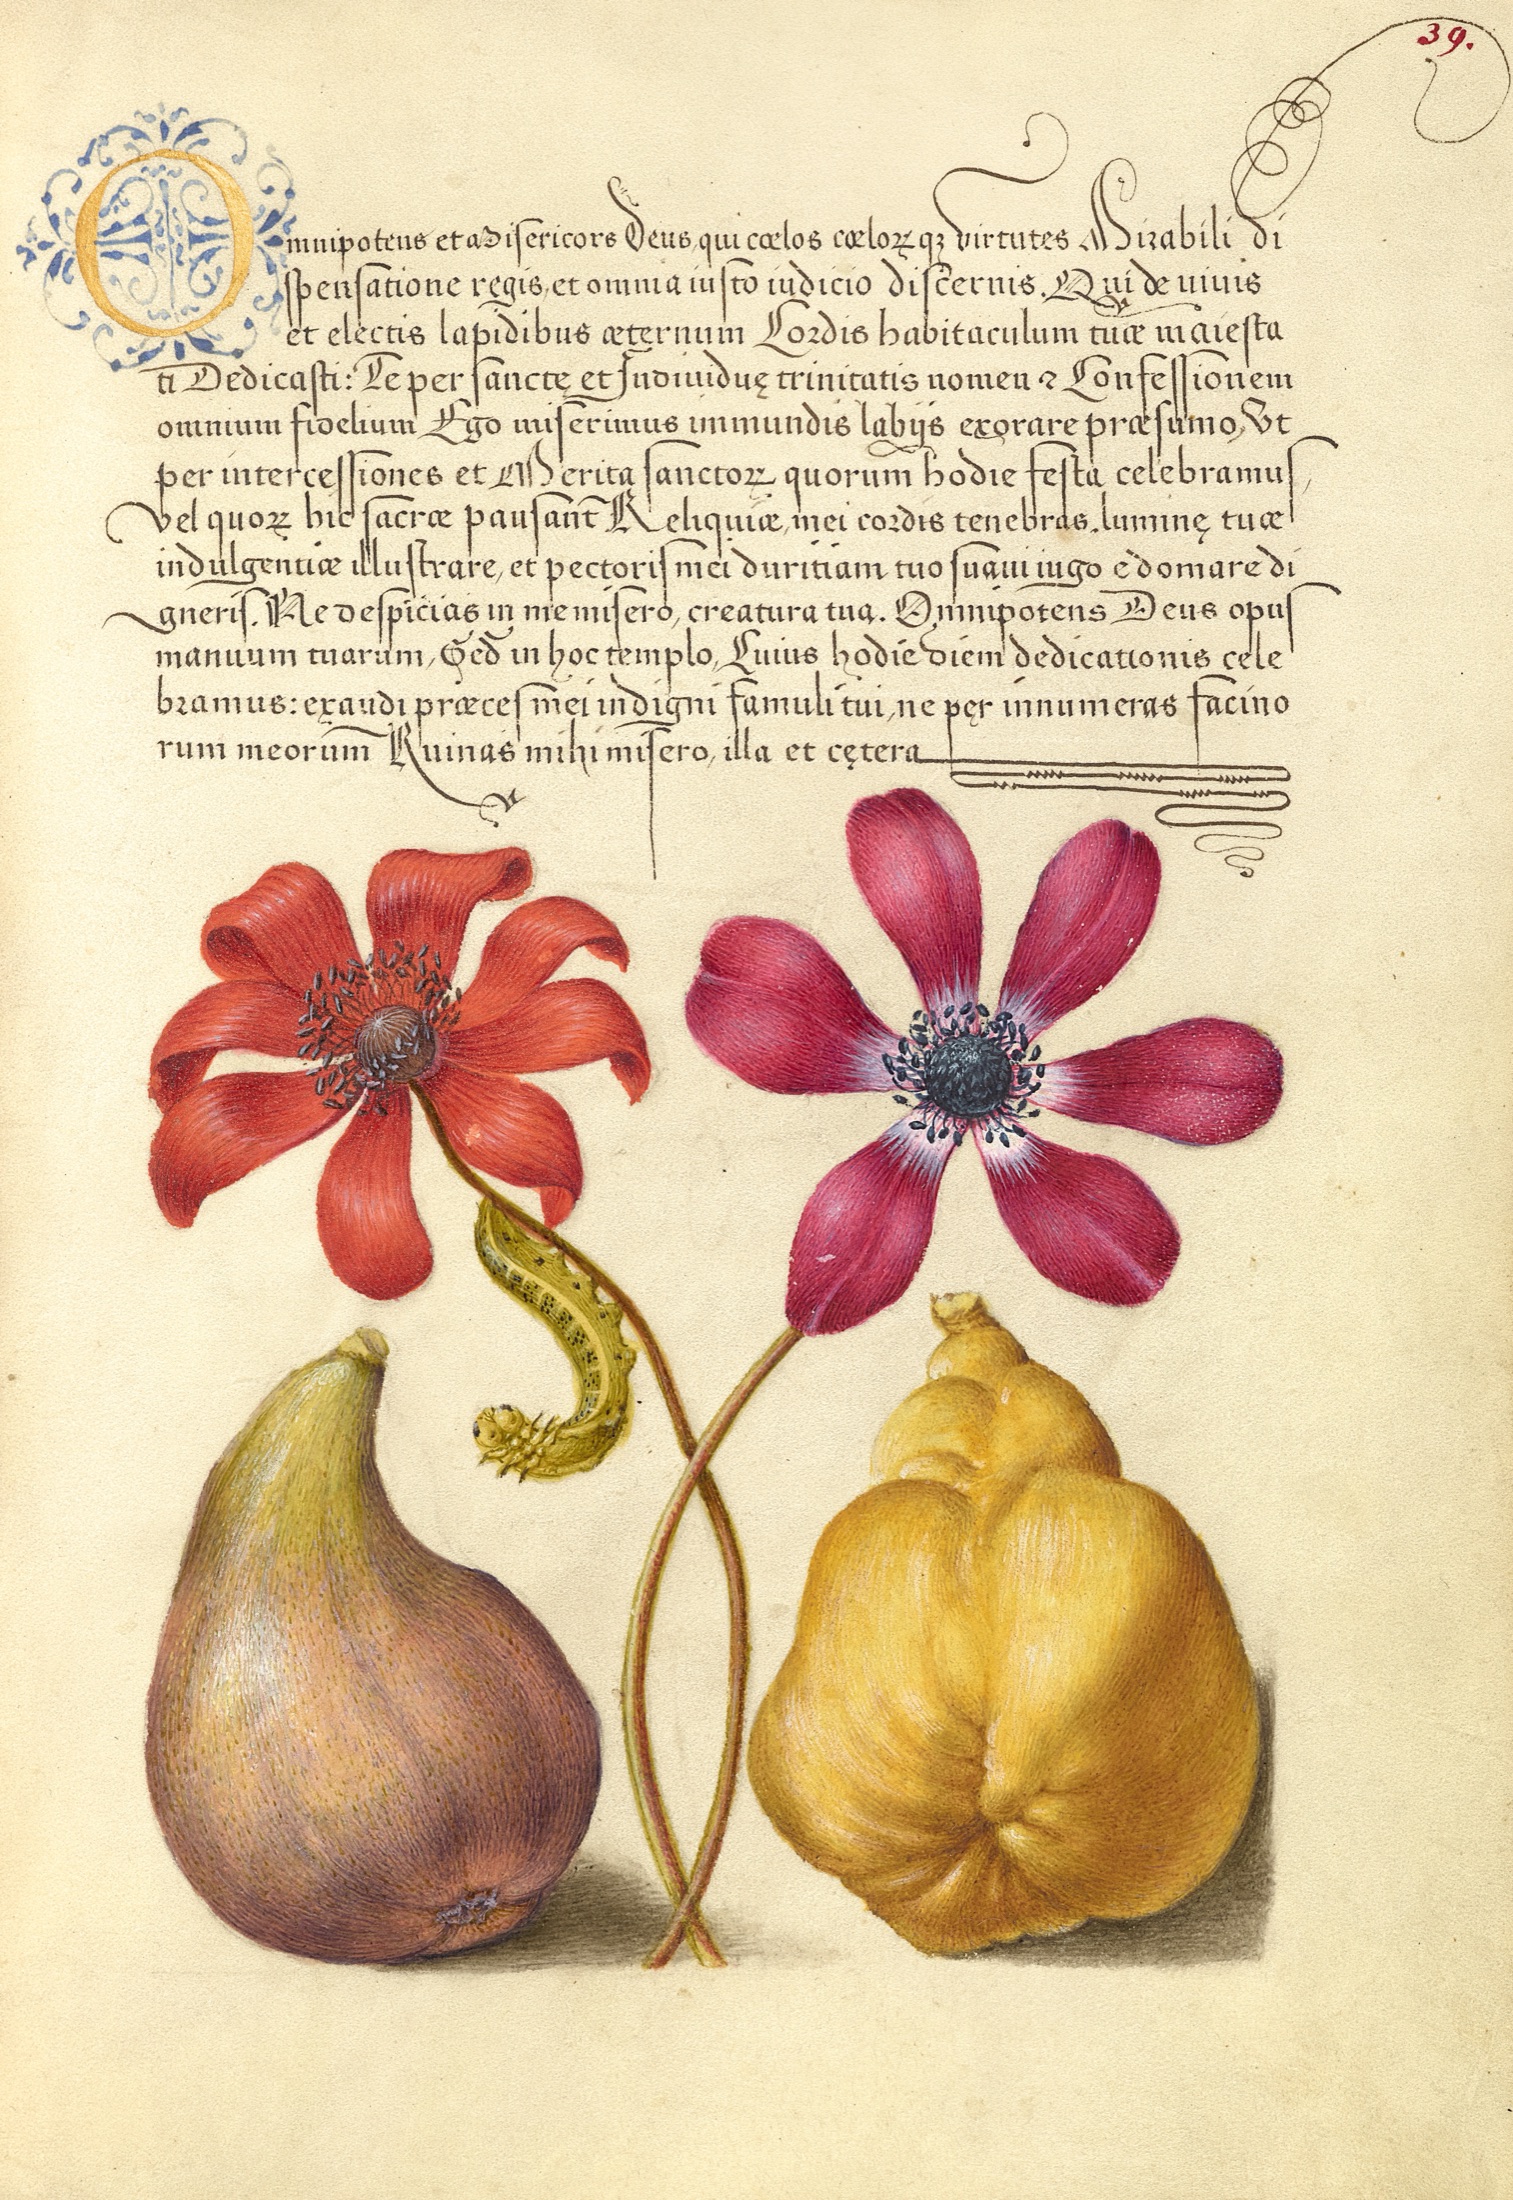 39.
Omnipotens et Misericors Deus, qui cœlos cœlorꝝ qꝫ virtutes Mirabili di
spensatione regis, et omnia iusto iudicio discernis. Qui de uiuis
et electis lapidibus æternum Cordis habitaculum tuæ maiesta
ti Dedicasti: Te per sanctę et Indiuiduę trinitatis nomen ⁊ Confessionem
omnium fidelium Ego miserimus immundis labijs exorare præsumo, Vt
per intercessiones et Merita sanctorꝝ quorum hodie festa celebramus,
vel quorꝝ hic sacræ pausant Reliquiæ, mei cordis tenebras, luminę tuæ
indulgentiæ illustrare, et pectoris mei duritiam tuo suaui iugo edomare di
gneris. Ne despicias in me misero, creatura tua. Omnipotens Deus opus
manuum tuarum, Sed in hoc templo, Cuius hodie diem dedicationis cele
bramus: exaudi præces mei indigni famuli tui, ne pęr innumeras facino
rum meorum Ruinas mihi misero, illa et cętera